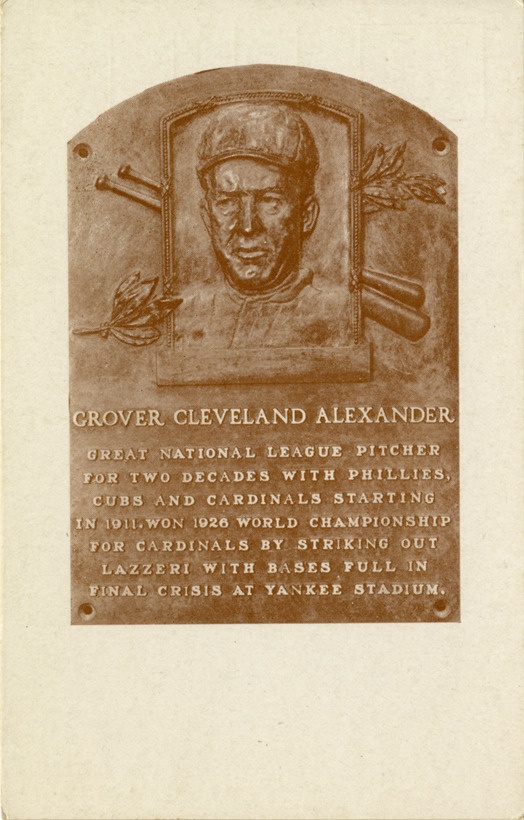 GROVER CLEVELAND ALEXANDER
GREAT NATIONAL LEAGUE PITCHER
FOR TWO DECADES WITH PHILLIES,
CUBS AND CARDINALS STARTING
IN 1911. WON 1926 WORLD CHAMPIONSHIP
FOR CARDINALS BY STRIKING OUT
LAZZERI WITH BASES FULL IN
FINAL CRISIS AT YANKEE STADIUM.